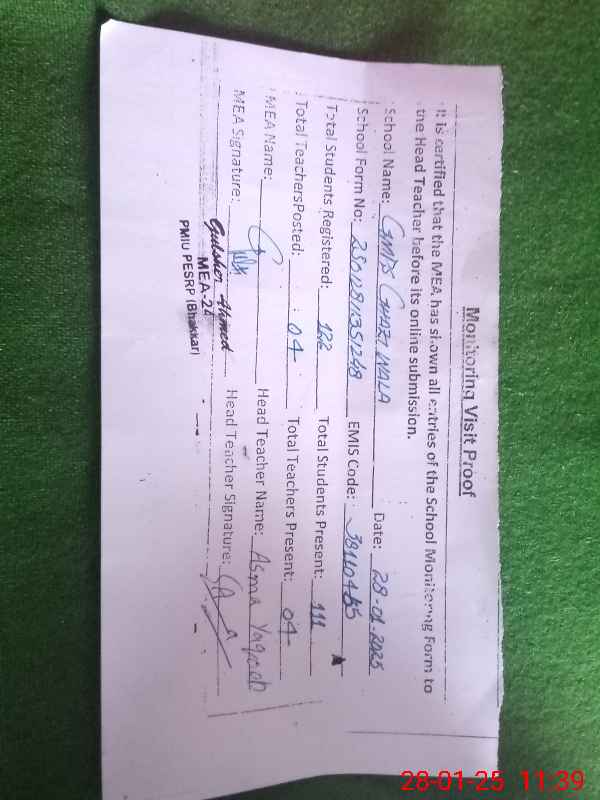 Monitoring Visit Proof
It is certified that the MEA has shown all entries of the School Monitoring Form to
the Head Teacher before its online submission.
School Name: GMPS GHAZI WALA Date: 28-01-2025
School Form No: EMIS Code:
Total Students Registered: 122 Total Students Present: 111
Total TeachersPosted: 04 Total Teachers Present: 04
MEA Name: Head Teacher Name: Asma Yaqoob
MEA Signature: Head Teacher Signature:
Gulsher Ahmed
MEA-24
PMIU PESRP (Bhakkar)
28-01-25 11:39